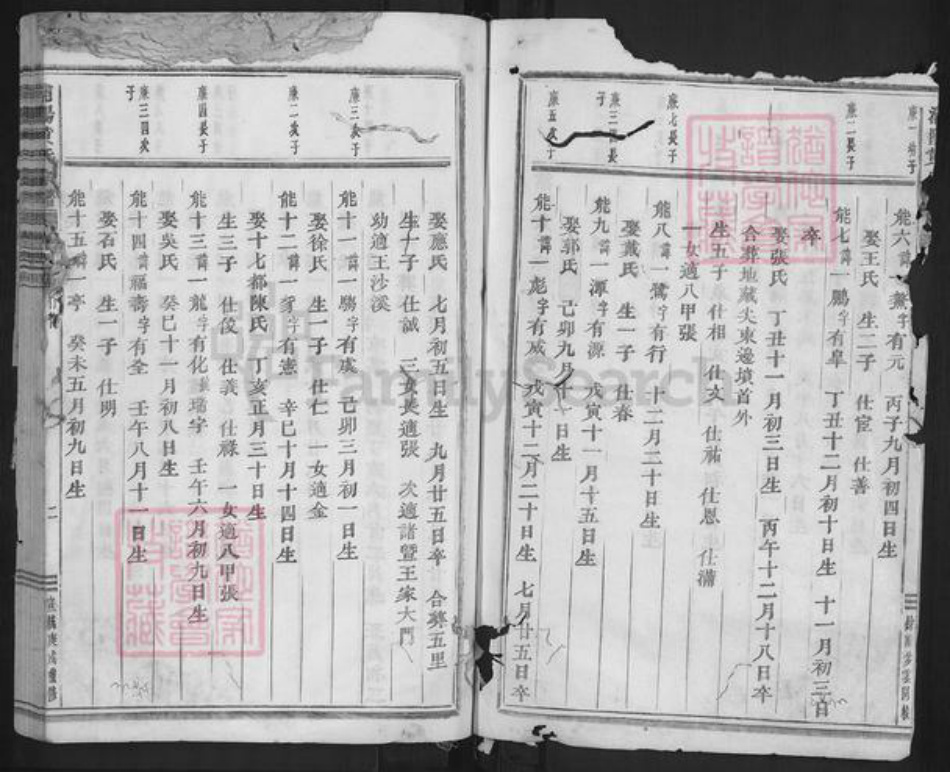 廉一幼子
能六諱一㷱字有元 丙子九月初四日生
娶王氏 生二子 仕宦 仕善
廉二長子
能七諱一鵬字有皐 丁丑十二月初十日生 十一月初三日
卒
娶張氏 丁丑十一月初三日生 丙午十二月十八日卒
合葬地藏尖東邊墳首外
生五子 仕相 仕文 仕祐 仕恩 仕滿
一女適八甲張
廉七長子
能八諱一鷺字有行 十二月二十日生
娶戴氏 生一子 仕春
廉三四長子
能九諱一潭字有源 戊寅十一月十五日生
娶郭氏 己卯九月十一日生
廉五次子
能十諱一彪字有威 戊寅十二月二十日生 七月廿五日卒
娶應氏 七月初五日生 九月廿五日卒 合葬五里
生一子 仕誠 三女長適張 次適諸暨王家大門
幼適王沙溪
廉三次子
能十一諱一騶字有虞 己卯三月初一日生
娶徐氏 生一子 仕仁 一女適金
廉二次子
能十二諱一豸字有憲 辛巳十月十四日生
娶十七都陳氏 丁亥正月三十日生
生三子 仕俊 仕義 仕祿 一女適八甲張
廉四長子
能十三諱一龍字有化號瑞宇 壬午六月初九日生
娶吳氏 癸巳十一月初八日生
廉三四次子
能十四諱福壽字有全 壬午八月十一日生
娶石氏 生一子 仕明
能十五諱一亭 癸未五月初九日生
二
FamilySearch